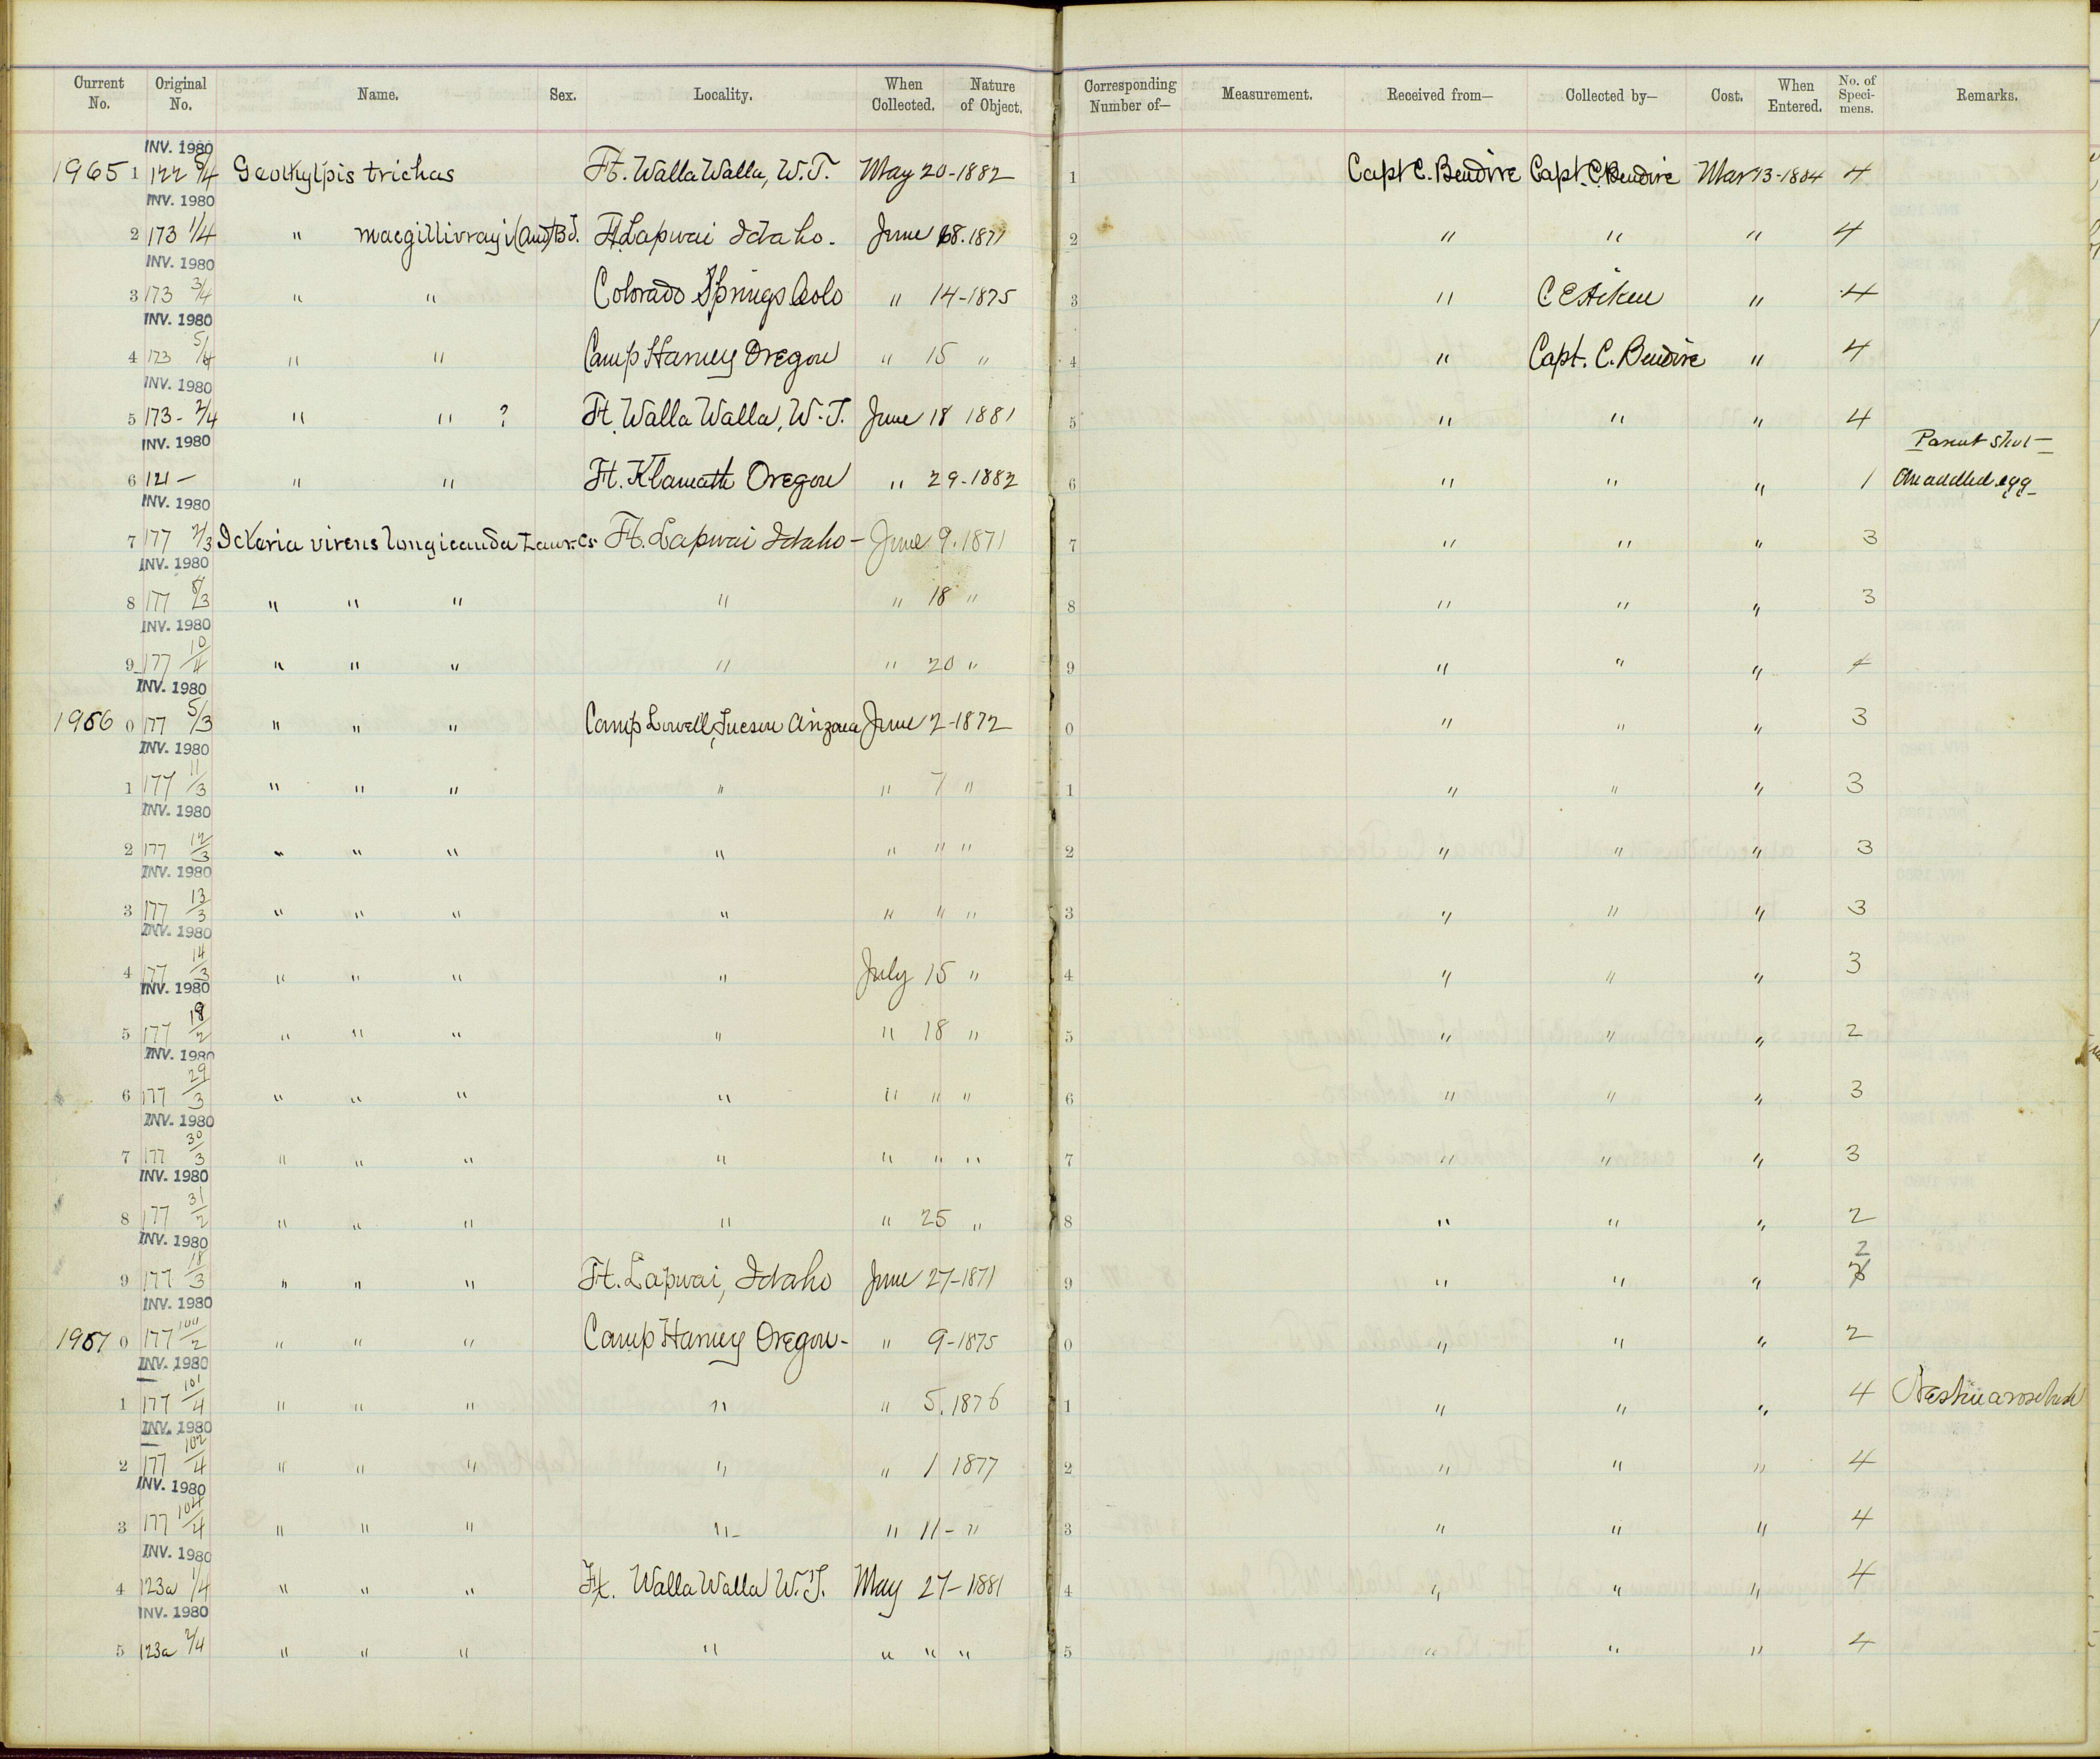 Current No. Original No. Name. Sex. Locality. When Collected. Nature of Object. Corresponding Number of— Measurement. Received from— Collected by— Cost. When Entered. No. of Speci-mens. Remarks.
INV. 1980
1965 1 122 5/4 Geothylpis trichas Ft. Walla Walla, W.T. May 20-1882 1 Capt C. Bendire Capt. C. Bendire Mar 13-1884 4
INV. 1980
2 173 1/4 " macgillivrayi (Aud) Bd. Ft Lapwai Idaho. June 18. 1871 2 " " " 4
INV. 1980
3 173 3/4 " " Colorado Springs Colo " 14-1875 3 " C E Aiken " 4
INV. 1980
4 173 5/4 " " Camp Harney Oregon " 15 " 4 " Capt. C. Bendire " 4
INV. 1980
5 173- 2/4 " " ? Ft. Walla Walla, W.T. June 18 1881 5 " " " 4
INV. 1980 Parent shot—
6 121 — " " Ft. Klamath Oregon " 29-1882 6 " " " 1 One addled egg
INV. 1980
7 177 2/3 Icteria virens longicauda Lawr. Cs. Ft. Lapwai Idaho— June 9. 1871 7 " " " 3
INV. 1980
8 177 8/3 " " " " " 18 " 8 " " " 3
INV. 1980
9 177 10/4 " " " " " 20 " 9 " " " 4
INV. 1980
1966 0 177 5/3 " " " Camp Lowell, Tucson Arizona June 2-1872 0 " " " 3
INV. 1980
1 177 11/3 " " " " " 7 " 1 " " " 3
INV. 1980
2 177 12/3 " " " " " " " 2 " " " 3
INV. 1980
3 177 13/3 " " " " " " " 3 " " " 3
INV. 1980
4 177 14/3 " " " " July 15 " 4 " " " 3
INV. 1980
5 177 18/2 " " " " " 18 " 5 " " " 2
INV. 1980
6 177 29/3 " " " " " " " 6 " " " 3
INV. 1980
7 177 30/3 " " " " " " " 7 " " " 3
INV. 1980
8 177 31/2 " " " " " 25 " 8 " " " 2
INV. 1980 2
9 177 18/3 " " " Ft. Lapwai, Idaho June 27-1871 9 " " "
INV. 1980
1967 0 177 100/2 " " " Camp Harney Oregon- " 9-1875 0 " " " 2
INV. 1980
1 177 101/4 " " " " " 5. 1876 1 " " " 4 Nest in a rosebush
INV. 1980
2 177 102/4 " " " " " 1 1877 2 " " " 4
INV. 1980
3 177 104/4 " " " " " 11- " 3 " " " 4
INV. 1980
4 123a 1/4 " " " Ft. Walla Walla W.T. May 27-1881 4 " " " 4
INV. 1980
5 123a 2/4 " " " " " " " 5 " " " 4